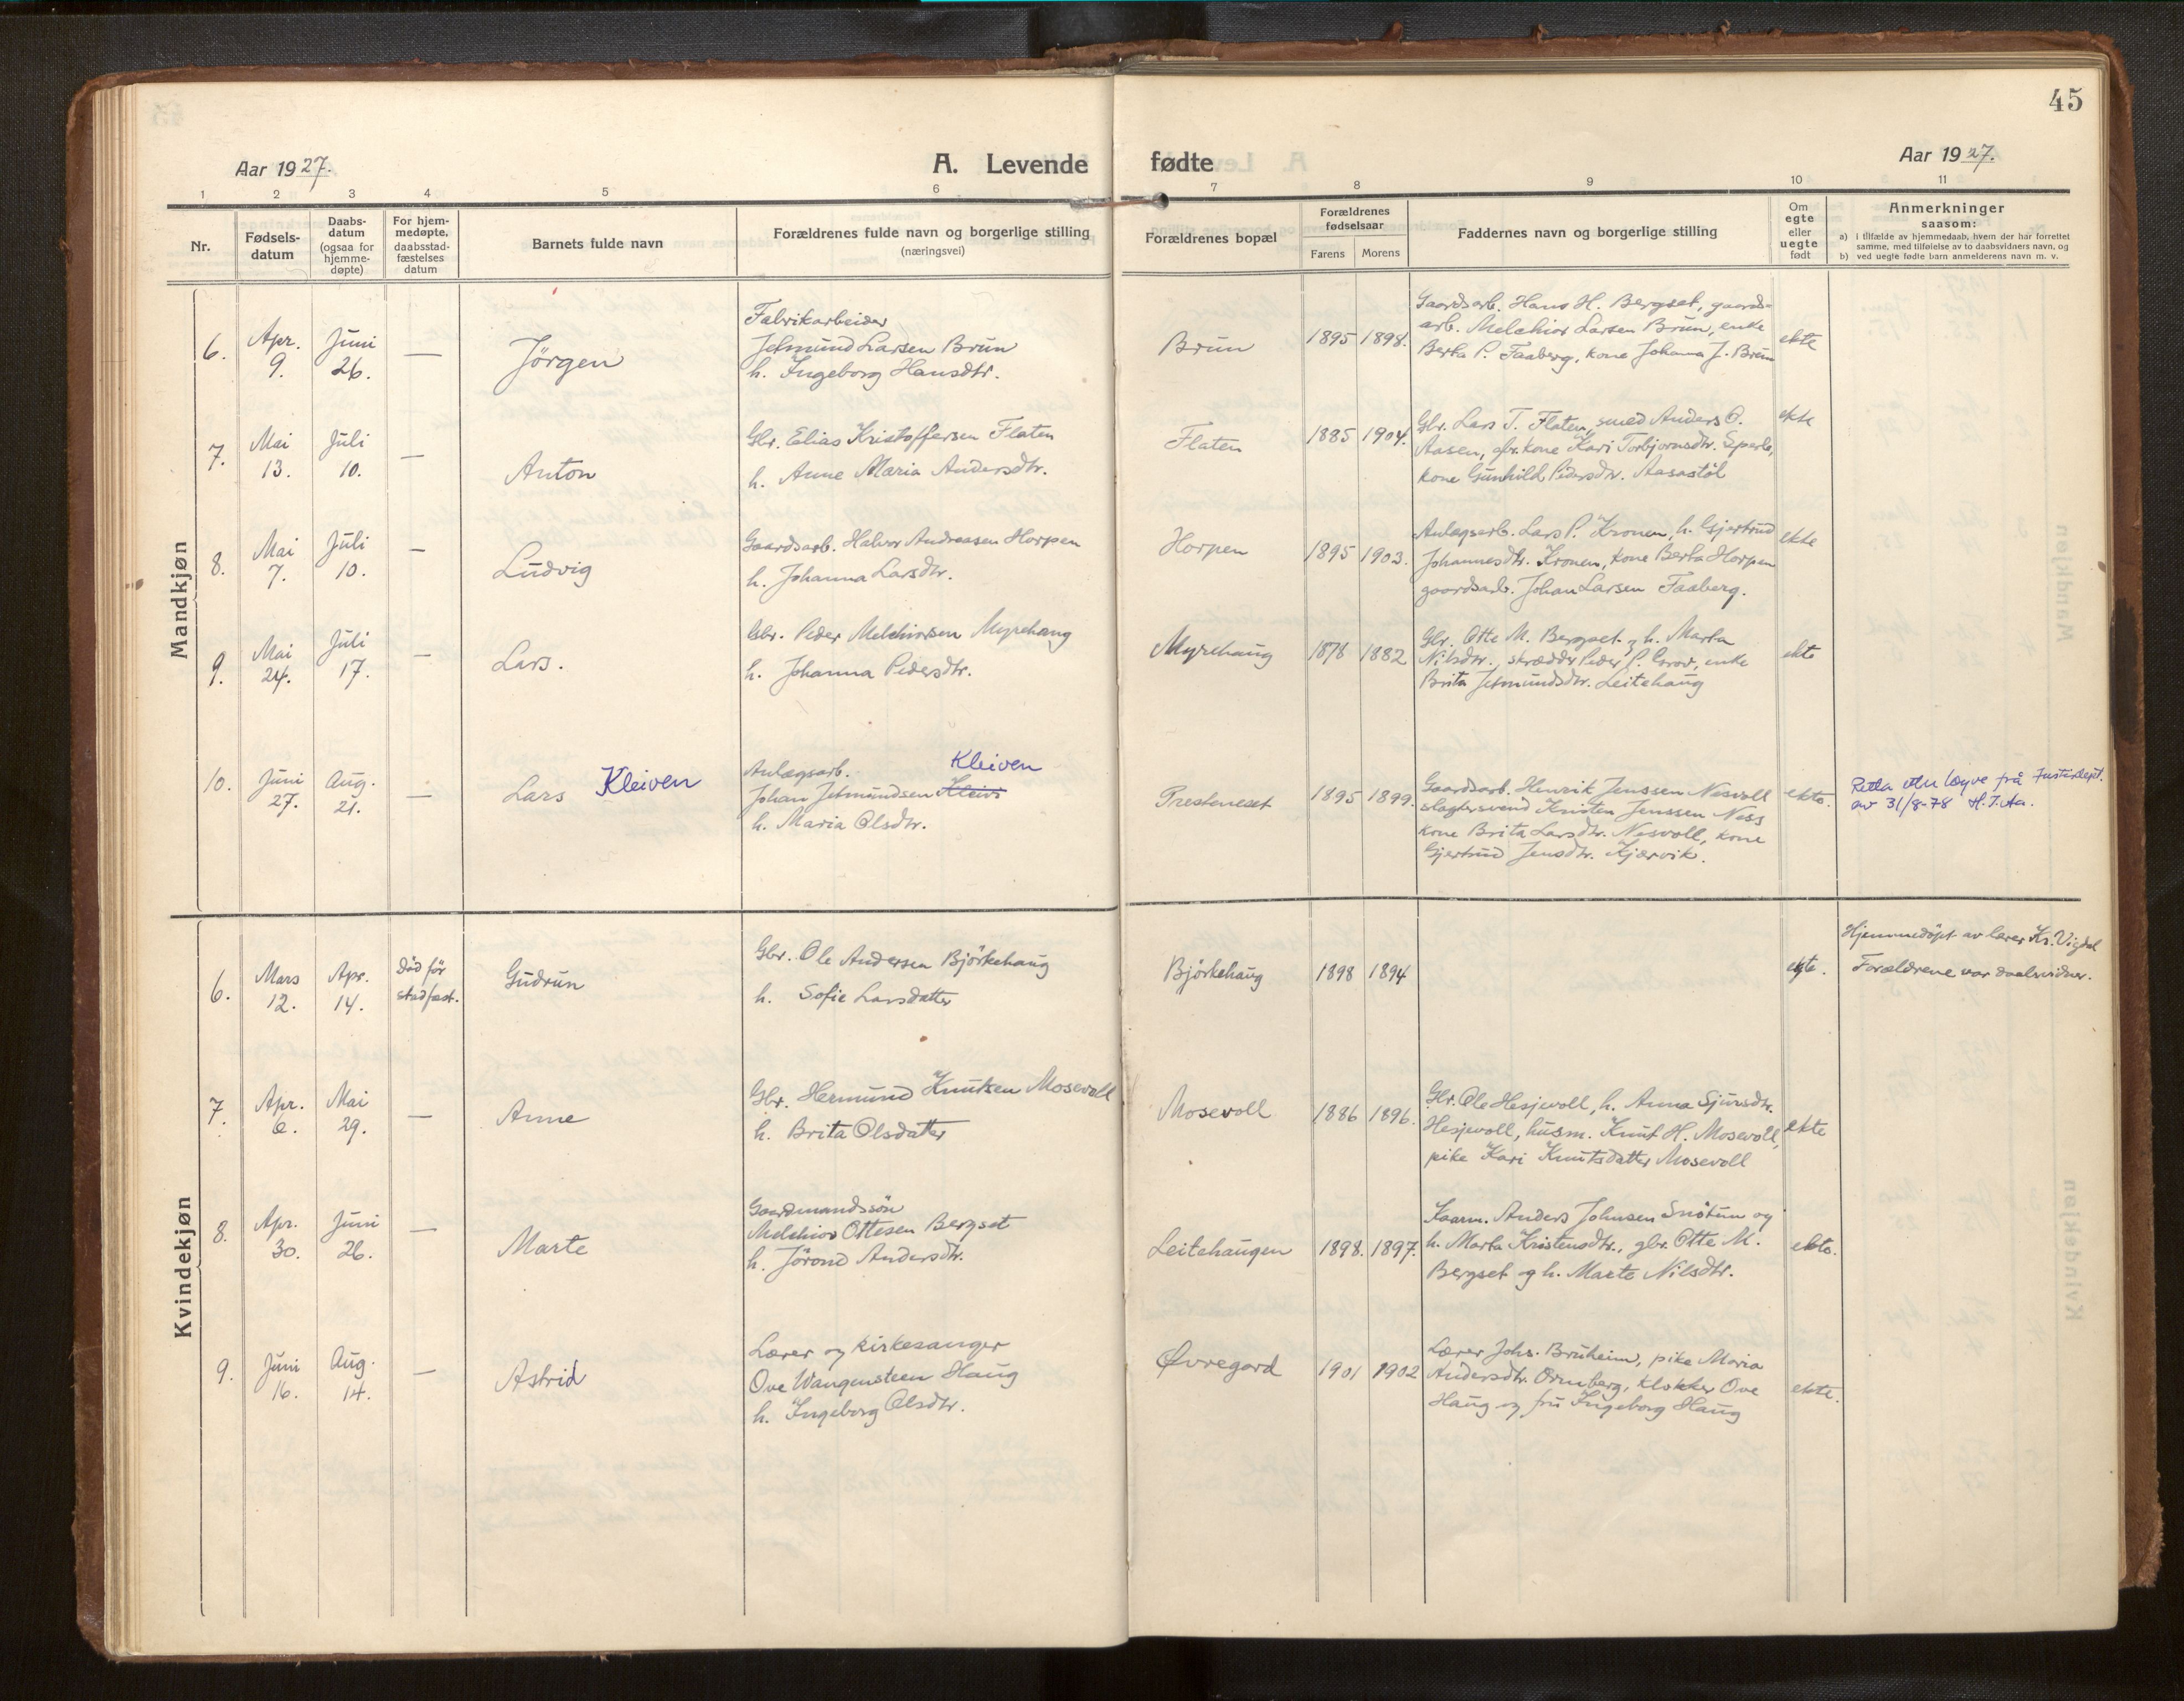 45
Aar 1927.
A. Levende
fødte
Aar 1927.
1 2 3 4 5 6 7 8 9 10 11
Nr.
Fødsels-
datum
Daabs-
datum
(ogsaa for
hjemme-
døpte)
For hjem-
medøpte,
daabsstad-
fæstelses
datum
Barnets fulde navn
Forældrenes fulde navn og borgerlige stilling
(næringsvei)
Forældrenes bopæl
Forældrenes
fødselsaar
Farens
Morens
Faddernes navn og borgerlige stilling
Om
egte
eller
uegte
født
Anmerkninger
saasom:
a) i tilfælde av hjemmedaab, hvem der har forrettet
samme, med tilføielse av to daabsvidners navn, og
b) ved uegte fødte barn anmelderens navn m. v.
Mandkjøn
6.
Apr.
9.
Juni
26.
—
Jörgen
Fabrikarbeider
Jetmund Larsen Brun
h. Ingeborg Hansdtr.
Brun
1895
1898.
Gaardsarb. Hans H. Bergset, gaards-
arb. Melchior Larsen Brun, enke
Berta P. Faaberg, kone Johanna J. Brun
ekte
7.
Mai
13.
Juli
10.
—
Anton
Gbr. Elias Kristoffersen Flaten
h. Anne Maria Andersdtr.
Flaten
1885
1904.
Gbr. Lars T. Flaten, smed Anders O.
Aasen, gbr.kone Kari Torbjornsdtr. Sperle,
kone Gunhild Pedersdtr. Aasastöl
ekte
8.
Mai
7.
Juli
10.
—
Ludvig
Gaardsarb. Halvor Andreasen Horpen
h. Johanna Larsdtr.
Horpen
1895
1903.
Anlægsarb. Lars P. Kronen, h. Gjertrud
Johannesdtr. Kronen, kone Berta Horpen
gaardsarb. Johan Larsen Faaberg.
ekte
9.
Mai
24.
Juli
17.
—
Lars.
Gbr. Peder Melchiorsen Myrehaug
h. Johanna Pedersdtr.
Myrehaug
1878
1882
Gbr. Otte M. Bergset og h. Marta
Nilsdtr., skrædder Peder P. Grov, enke
Brita Jetmundsdtr. Leitehaug
ekte
10.
Juni
27.
Aug.
21.
—
Lars Kleiven
Anlægsarb. Kleiven
Johan Jetmundsen Kleivi
h. Maria Olsdtr.
Presteneset
1895
1899.
Gaardsarb. Henrik Jenssen Nesvoll
slagtersvend Kristen Jenssen Ness
kone Brita Larsdtr. Nesvoll, kone
Gjertrud Jensdtr. Kjærvik.
ekte.
Retta etter løyve frå Justisdept.
av 31/8-78 H.J.Aa.
Kvindekjøn
6.
Mars
12.
Apr.
14.
Död för
stadfæst.
Gudrun
Gbr. Ole Andersen Björkehaug
h. Sofie Larsdatter
Björkehaug
1898
1894
egte.
Hjemmedöpt av lærer Kr. Vigdal
Forældrene var daabsvidner.
7.
Apr.
6.
Mai
29.
—
Anne
Gbr. Hermund Knutsen Mosevoll
h. Brita Olsdatter
Mosevoll
1886
1896.
Gbr. Ole Hesjevoll, h. Anna Sjursdtr.
Hesjevoll, husm. Knut H. Mosevoll,
pike Kari Knutsdatter Mosevoll
ekte
8.
Apr.
30.
Juni
26.
—
Marte
Gaardmandssön
Melchior Ottesen Bergset
h. Jörond Andersdtr.
Leitehaugen
1898.
1897.
Kaarm. Anders Johnsen Snötun og
h. Marta Kristensdtr., gbr. Otte M.
Bergset og h. Marte Nilsdtr.
ekte.
9.
Juni
16.
Aug.
14.
—
Astrid
Lærer og kirkesanger
Ove Wangensteen Haug
h. Ingeborg Olsdtr.
Øvregard
1901
1902
Lærer Johs. Bruheim, pike Maria
Andersdtr. Ormberg, klokker Ove
Haug og fru Ingeborg Haug
ekte.